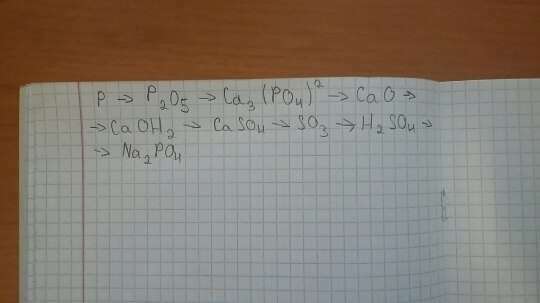 P → P₂O₅ → Ca₃(PO₄)² → CaO →
→ CaOH₂ → CaSO₄ → SO₃ → H₂SO₄ →
→ Na₂PO₄